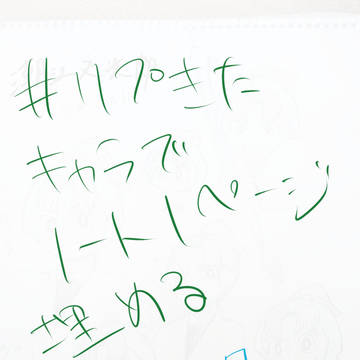 #リプきた
キャラで
ノート1ページ
埋める